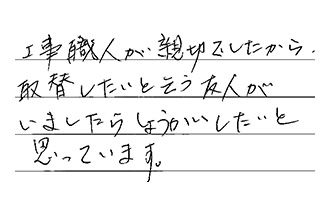 工事職人が親切でしたから、
取替したいと云う友人が
いましたらしょうかいしたいと
思っています。